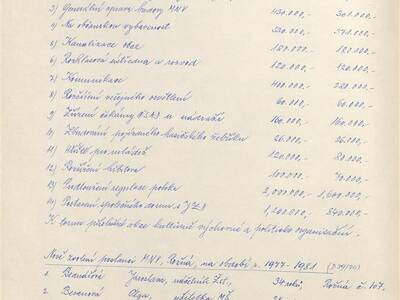 3) Generální oprava budovy MNV 430.000,- 301.000,-
4) Na občanskou vybavenost 530.000,- 371.000,-
5) Kanalizace obce 180.000,- 180.000,-
6) Rozhlasová ústředna a rozvod 120.000,- 120.000,-
7) Komunikace 400.000,- 280.000,-
8) Rozšíření veřejného osvětlení 60.000,- 60.000,-
9) Zřízení čekárny ČSAD u nádraží 160.000,- 160.000,-
10) Zbudování požárního hasičského 26.000,- 26.000,-
11) pro mládež 120.000,- 80.000,-
12) Rozšíření hřbitova 100.000,- 70.000,-
13) Prodloužení regulace potoka 2,000.000,- 1,600.000,-
14) Postavení společného domu s JZD 1,200.000,- 840.000,-
K tomu přiložné obce kulturně výchovné a politicko organisační.
Nově zvolení poslanci MNV, Rožná, na období r. 1977-1981
1. Jaroslava, Rožná č. 107.
2. Beranová Olga, učitelka MŠ,